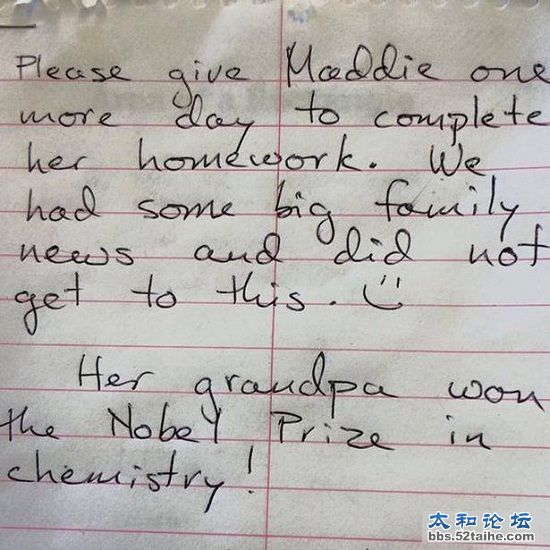 Please give Maddie one
more day to complete
her homework. We
had some big family
news and did not
get to this. :)
Her grandpa won
the Nobel Prize in
chemistry!
太和论坛
bbs.52taihe.com